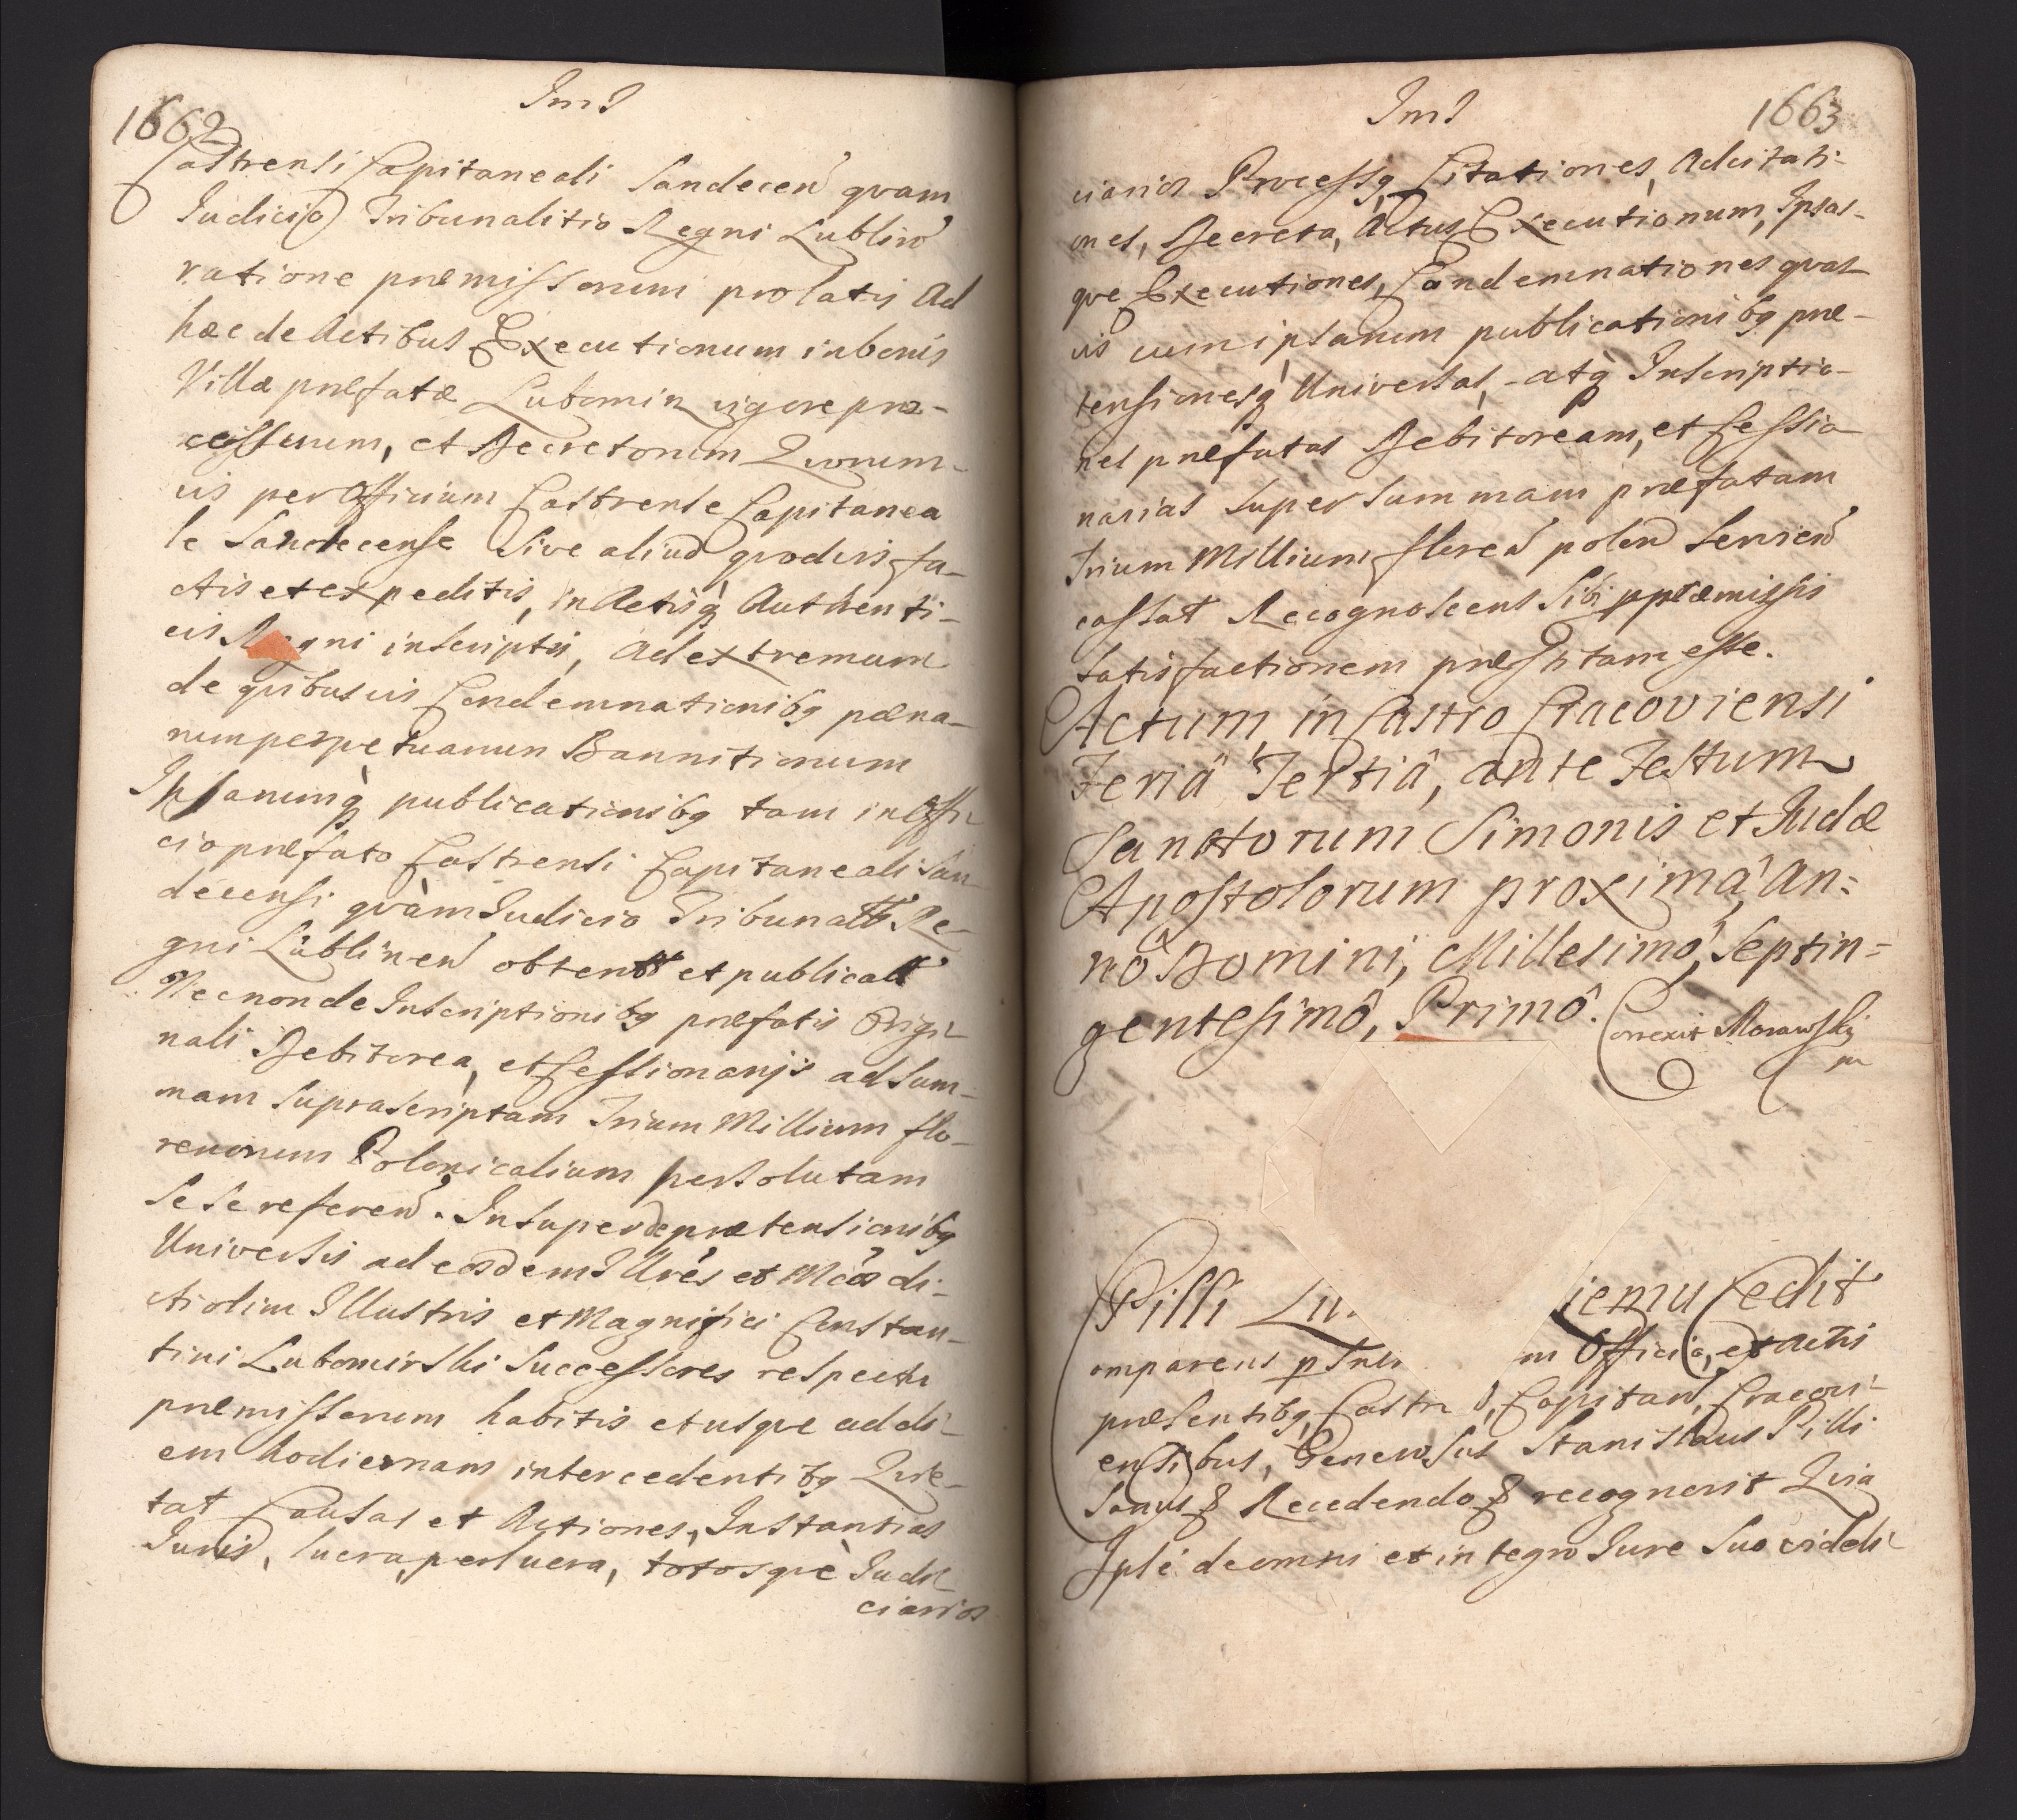 1662
Castrensi Capitaneali Sandecen quam
Judicio Tribunalitio Regni Lublin
ratione præmissorum prolatis Ad
hæc de Actibus Executionum in bonis
Villæ præfatæ Lubomir vigore pro-
cessuum, et Decretorum Quorum-
vis per Officium Castrense Capitanea
le Sandecense Sive aliud quodvis fa-
ctis et expeditis, in Actisq Authenti-
cis gni inscriptis, Ad extremum
de quibusvis Condemnationibq pæna-
rum perpetuarum Bannitionum
Ipsarumq publicationibq tam in Offi-
cio præfato Castrensi Capitaneali San-
decensi quàm Judicio Tribunal Re-
gni Lublinen obtent et publicat
Necnon de Inscriptionibq præfatis Origi-
nali Debitorea, et Cessionarijs ad Sum-
mam Suprascriptam Trium Millium flo-
renorum Polonicalium persolutam
Se Se referen. Insuper de prætensionibq
Universis ad eosdem Illres et Mcos di-
cti olim Illustris et Magnifici Constan-
tini Lubomirski Successores respectu
præmissorum habitis et usque ad di-
em hodiernam intercedentibq Quie-
tat Causas et Actiones, Instantias
Juris, lucra, perlucra, totosque Judi-
ciarios
1663
ciarios Processq Citationes, Adcitati-
ones, Decreta, Actus Executionum, Ipsas-
que Executiones, Condemnationes quas-
vis cum ipsarum publicationibq præ-
tensionesq Universas, atq Inscriptio-
nes præfatas Debitoream, et Cessio-
narias Super Summam præfatam
Trium Millium floren polon Servien
cassat Recognoscens Sibi præmissis
Satisfactionem præstitam esse.
Actum in Castro Cracoviensi
Feriâ Tertiâ, ante Festum
Sanctorum Simonis et Judæ
Apostolorum proximâ, An:
nô Domini, Millesimô, Septin=
gentesimô, Primô. Correxit Morawski
m
Pilli Lu. iemu Cedit
omparens m Officio, et Actis
præsentibq, Castr , Capitan, Cracovi-
ensibus, Generosus Stanislaus Pilli
Recedendo recognovit Quia
Ipse de omni et integro Jure Suo videli-